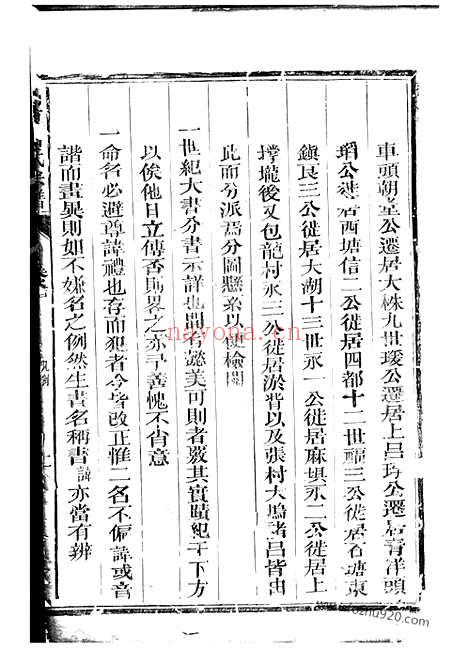 車頭朝堂公遷居大株九世琰公遷居上呂玝公遷居青洋頭
琩公徙居西塘信二公徙居四都十二世福三公徙居石塘東
鎮艮三公徙居大湖十三世永一公徙居麻垻永二公徙居上
墩壠後又包龍村永三公徙居淤背以及張村大塢諸呂皆由
此而分派爲分圖懸系以便檢閱
一世紀大書分書示詳也間有懿美可則者敘其實蹟紀于下方
以俟他日立傳否則畧之亦寻善愧不肖意
一命名必避尊諱禮也存而犯者令皆改正惟二名不偏諱或音
諧而畫異則如不嫌名之例然生書名稱書諱亦當有辨
凡例
nayona.cn
www.tuzhu920.com